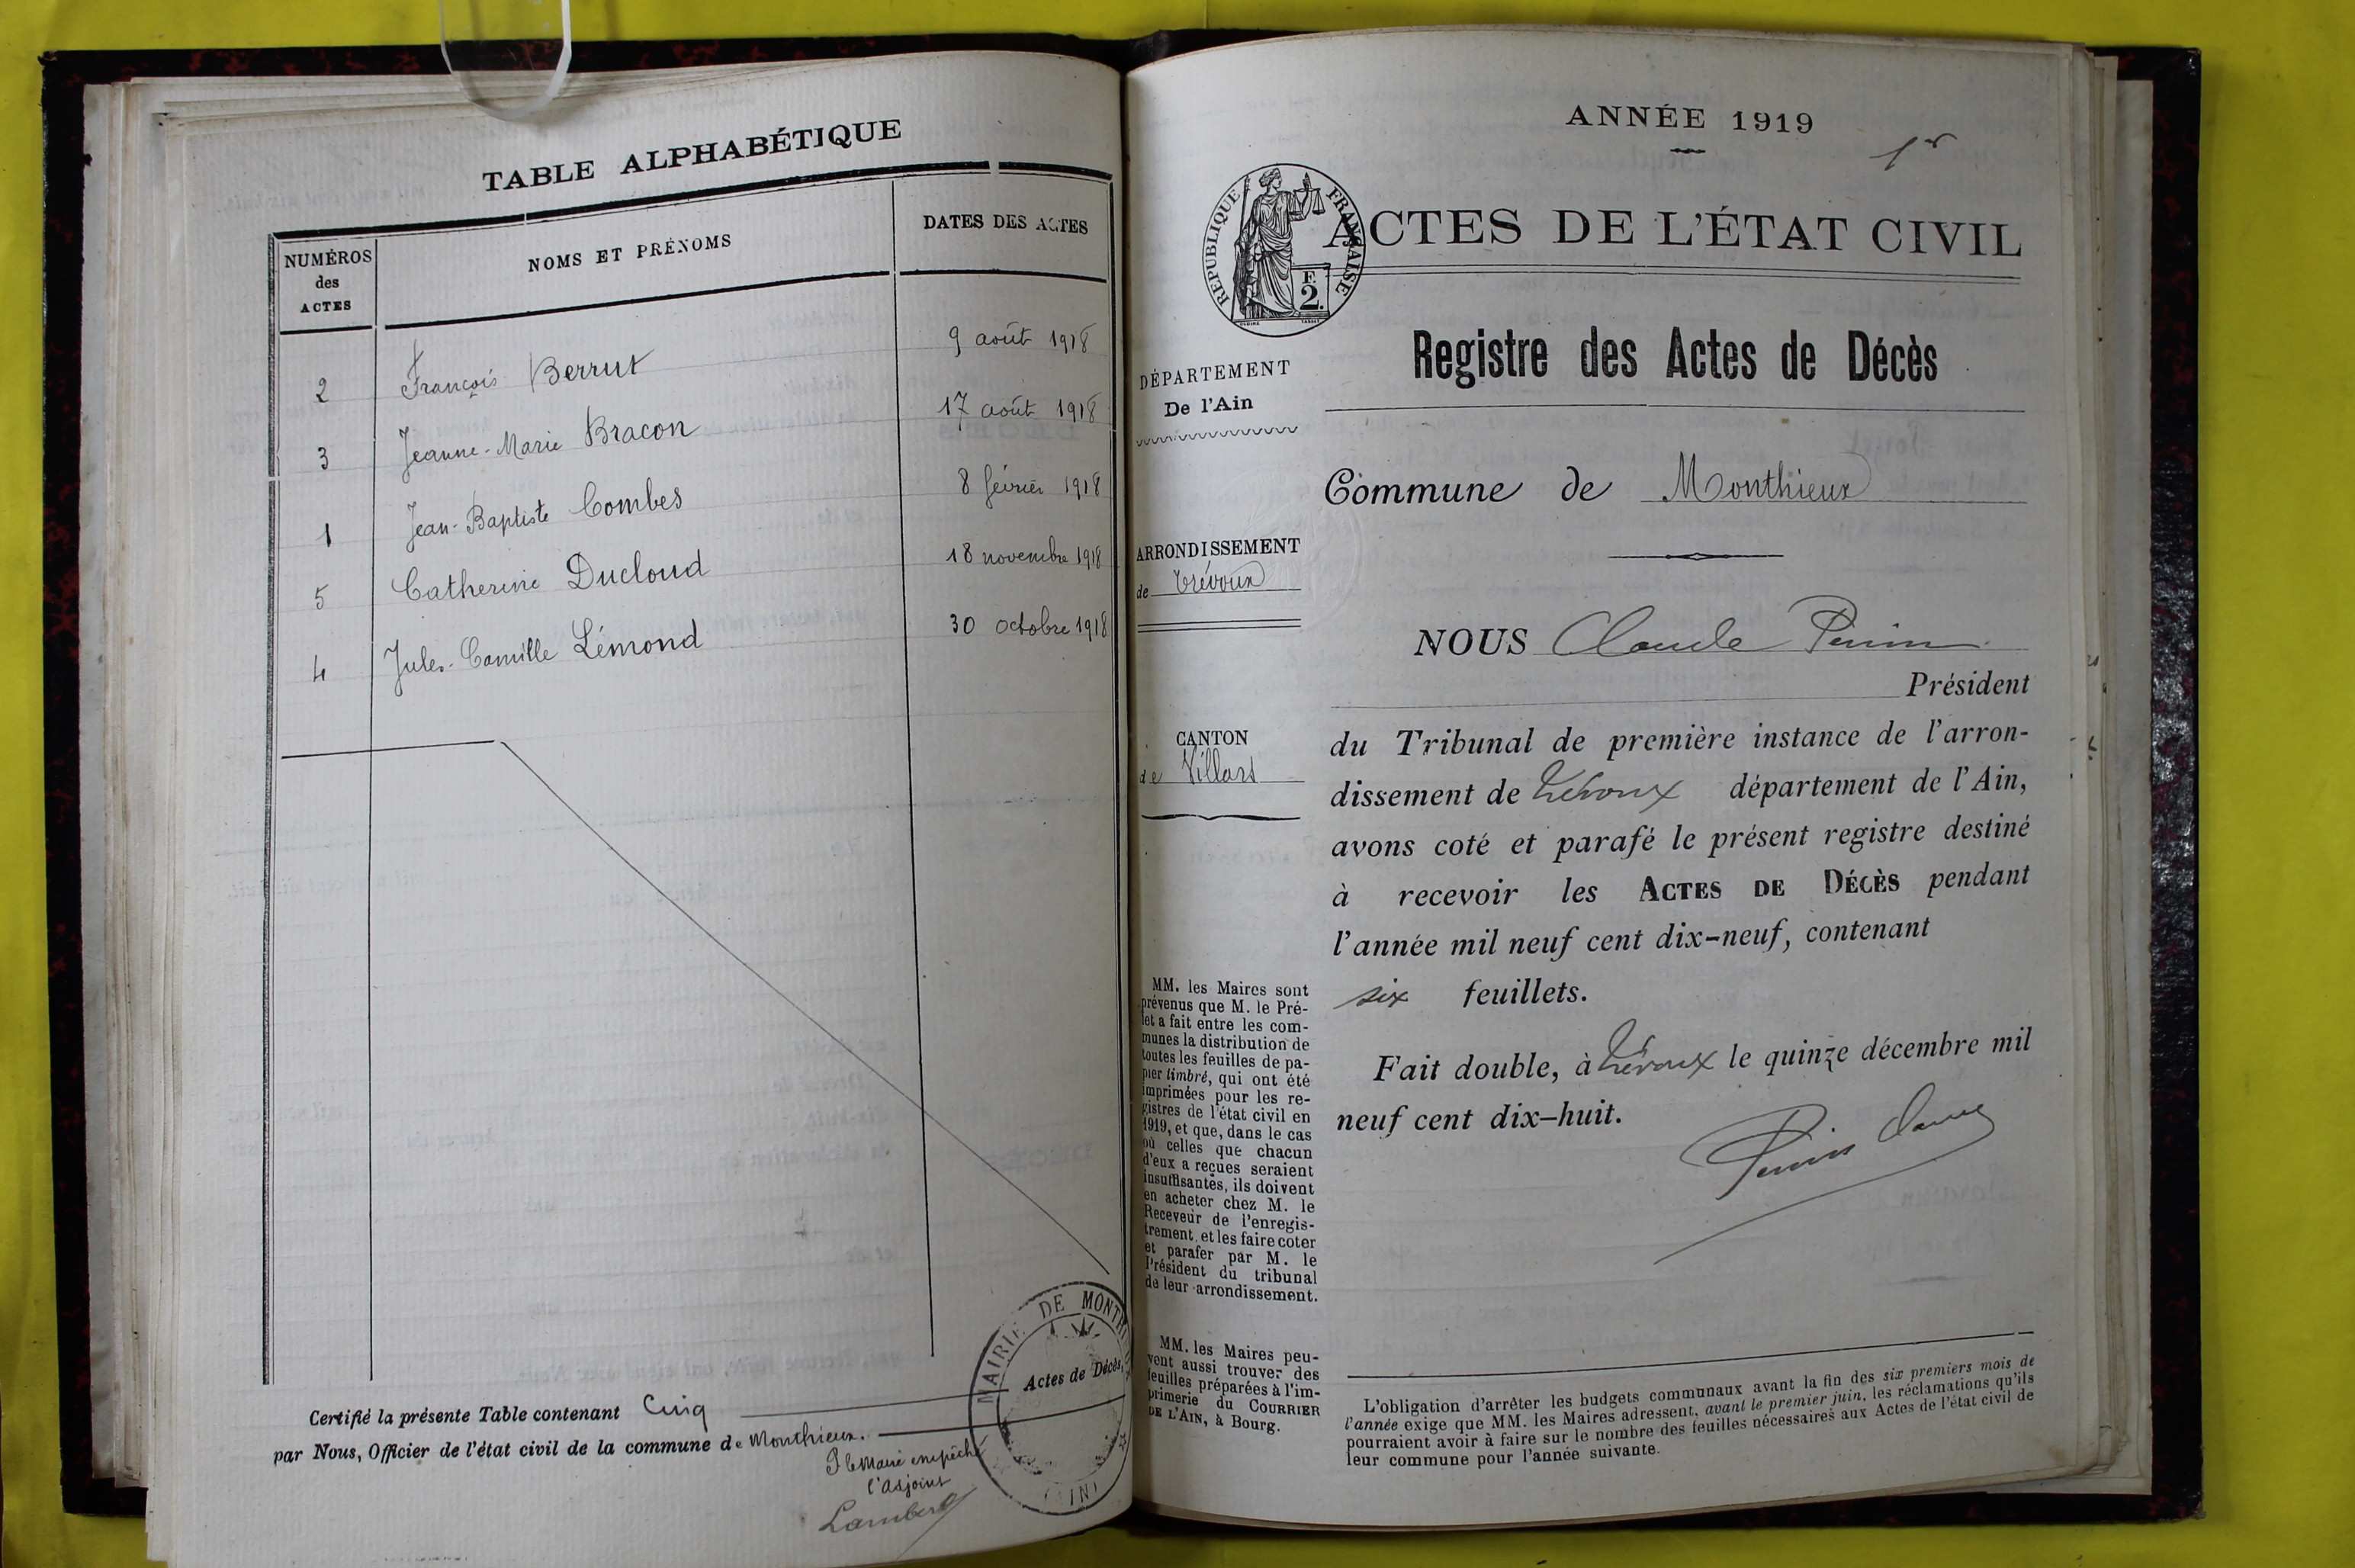 TABLE ALPHABÉTIQUE
NUMÉROS
des
ACTES
NOMS ET PRÉNOMS
DATES DES ACTES
2 François Berrut 9 août 1918
3 Jeanne-Marie Bracon 17 août 1918
1 Jean-Baptiste Combes 8 février 1918
5 Catherine Ducloud 18 novembre 1918
4 Jules-Camille Lémond 30 octobre 1918
Certifié la présente Table contenant Cinq
par Nous, Officier de l'état civil de la commune de Monthieux.
P. le Maire empêché
l'adjoint
Lambert
MAIRIE DE MONTH
Actes de Décès
ANNÉE 1919
1er
RÉPUBLIQUE FRANÇAISE
F.
2.
ACTES DE L'ÉTAT CIVIL
Registre des Actes de Décès
DÉPARTEMENT
De l'Ain
Commune de Monthieux
ARRONDISSEMENT
de Trévoux
CANTON
de Villars
NOUS Claude Perrin
Président
du Tribunal de première instance de l'arron-
dissement de Trévoux département de l'Ain,
avons coté et parafé le présent registre destiné
à recevoir les ACTES DE DÉCÈS pendant
l'année mil neuf cent dix-neuf, contenant
six feuillets.
Fait double, à Trévoux le quinze décembre mil
neuf cent dix-huit.
MM. les Maires sont
prévenus que M. le Pré-
fet a fait entre les com-
munes la distribution de
toutes les feuilles de pa-
pier timbré, qui ont été
imprimées pour les re-
gistres de l'état civil en
1919, et que, dans le cas
où celles que chacun
d'eux a reçues seraient
insuffisantes, ils doivent
en acheter chez M. le
Receveur de l'enregis-
trement, et les faire coter
et parafer par M. le
Président du tribunal
de leur arrondissement.
MM. les Maires peu-
vent aussi trouver des
feuilles préparées à l'im-
primerie du COURRIER
DE L'AIN, à Bourg.
L'obligation d'arrêter les budgets communaux avant la fin des six premiers mois de
l'année exige que MM. les Maires adressent, avant le premier juin, les réclamations qu'ils
pourraient avoir à faire sur le nombre des feuilles nécessaires aux Actes de l'état civil de
leur commune pour l'année suivante.